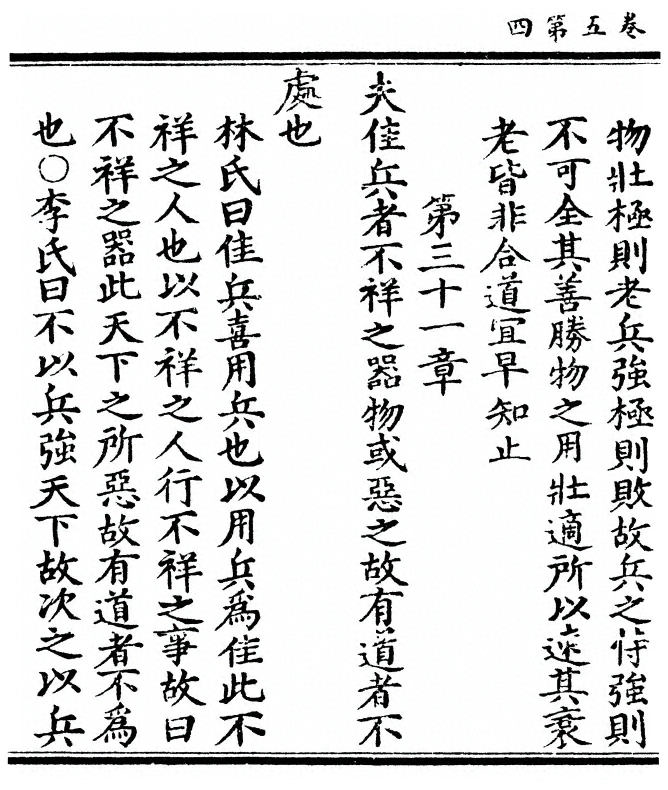 卷五第四
物壯極則老兵強極則敗故兵之恃強則
不可全其善勝物之用壯適所以速其衰
老皆非合道宜早知止
第三十一章
夫佳兵者不祥之器物或惡之故有道者不
處也
林氏曰佳兵喜用兵也以用兵爲佳此不
祥之人也以不祥之人行不祥之事故曰
不祥之器此天下之所惡故有道者不爲
也○李氏曰不以兵強天下故次之以兵